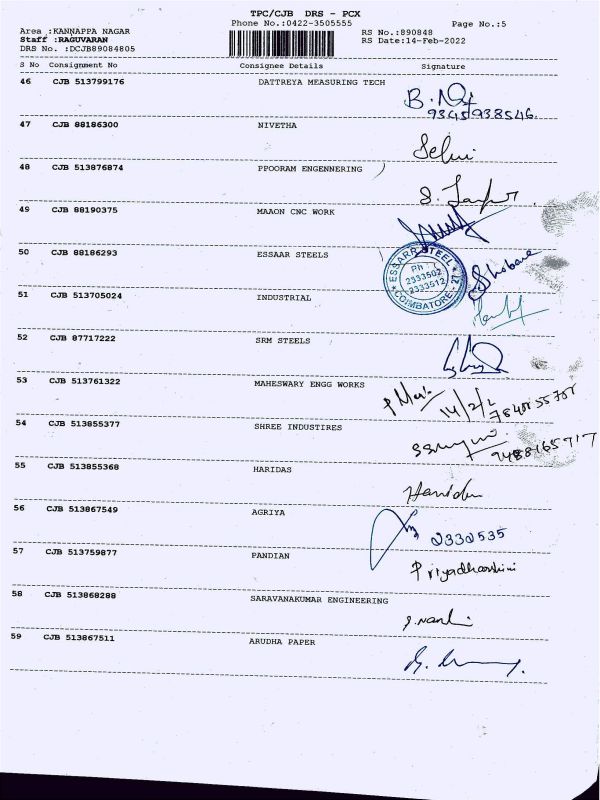 TPC/CJB DRS - PCX
Phone No.:0422-3505555
Page No.:5
Area :KANNAPPA NAGAR
Staff :RAGUVARAN
DRS No. :DCJB89084805
RS No.:890848
RS Date:14-Feb-2022
S No Consignment No Consignee Details Signature
46 CJB 513799176 DATTREYA MEASURING TECH
9345938546.
47 CJB 88186300 NIVETHA
Selvi
48 CJB 513876874 PPOORAM ENGENNERING
49 CJB 88190375 MAAON CNC WORK
50 CJB 88186293 ESSAAR STEELS
ESSARR STEEL
Ph :
2333502
2333512
COIMBATORE - 27
Shobana
51 CJB 513705024 INDUSTRIAL
52 CJB 87717222 SRM STEELS
53 CJB 513761322 MAHESWARY ENGG WORKS
14/2/2
54 CJB 513855377 SHREE INDUSTIRES
9488165717
55 CJB 513855368 HARIDAS
Haridas
56 CJB 513867549 AGRIYA
2332535
57 CJB 513759877 PANDIAN
Priyadharshini
58 CJB 513868288 SARAVANAKUMAR ENGINEERING
59 CJB 513867511 ARUDHA PAPER